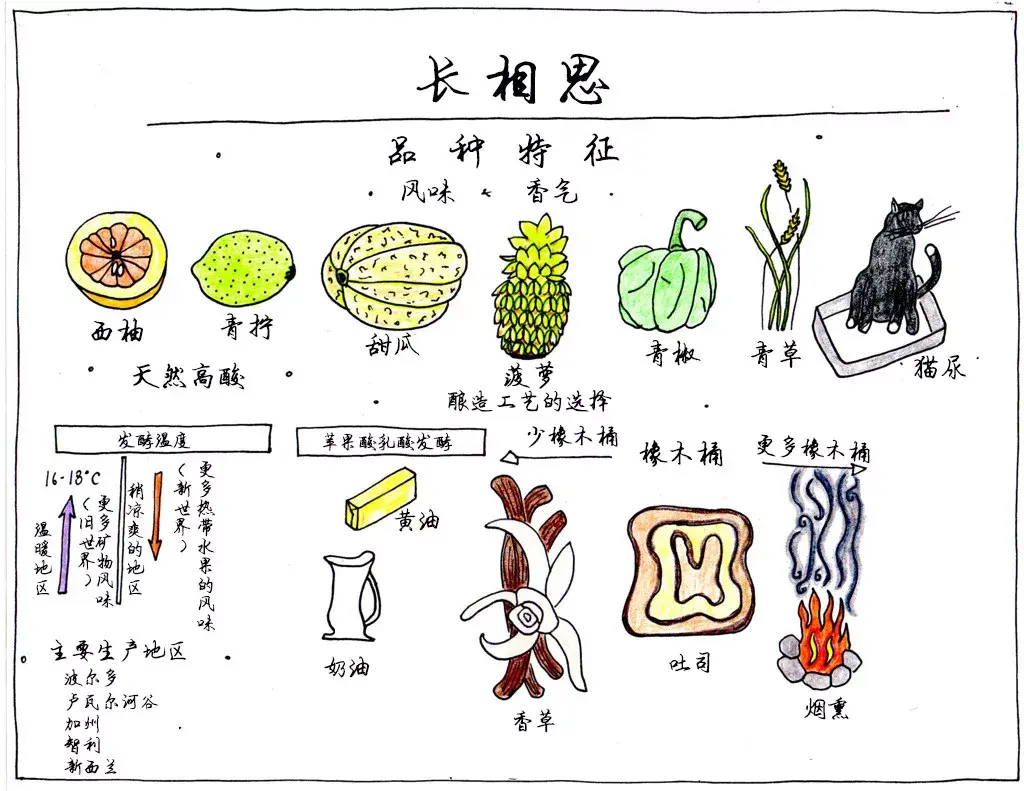 长相思
品种特征
风味 & 香气
西柚
青拧
甜瓜
菠萝
青椒
青草
猫尿
天然高酸
酿造工艺的选择
发酵温度
16-18°C
温暖地区
更多矿物风味
(旧世界)
稍凉爽的地区
(新世界)
更多热带水果的风味
苹果酸乳酸发酵
黄油
奶油
少橡木桶
橡木桶
更多橡木桶
香草
吐司
烟熏
主要生产地区
波尔多
卢瓦尔河谷
加州
智利
新西兰